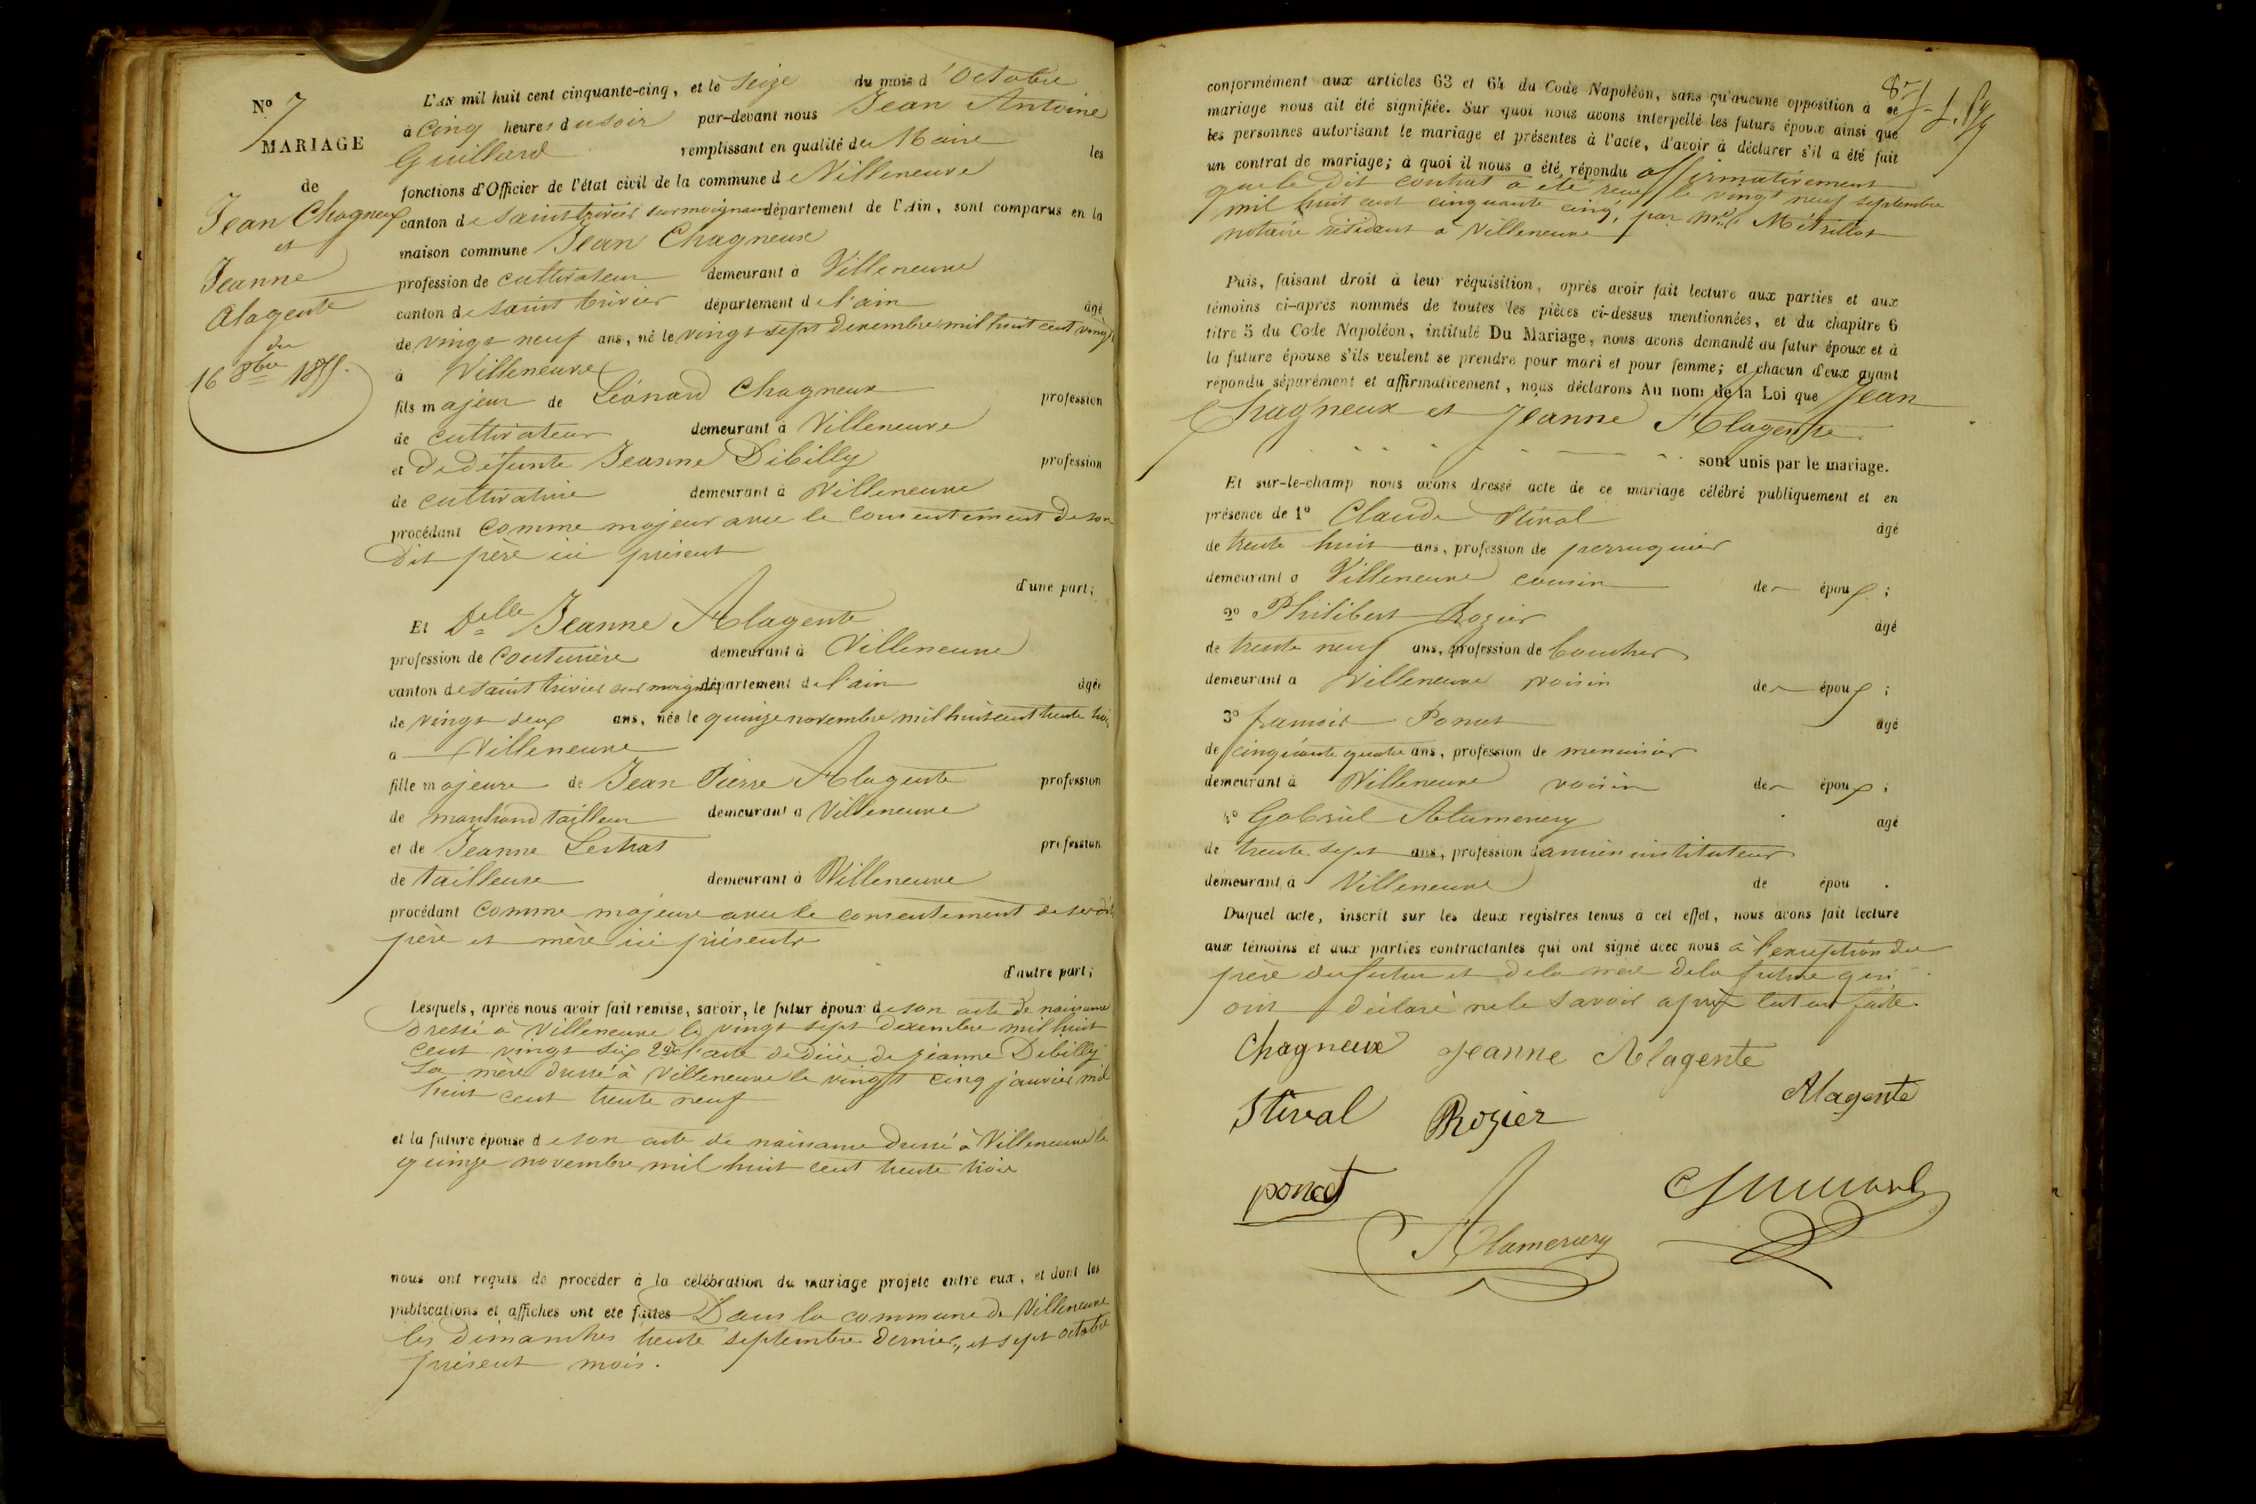 Nº 7
MARIAGE
de
Jean Chagneux
et
Jeanne
Alagente
du
16 8bre 1855.
L'AN mil huit cent cinquante-cinq, et le Seize du mois d'Octobre
à Cinq heures du soir par-devant nous Jean Antoine
Guillard remplissant en qualité de Maire les
fonctions d'Officier de l'état civil de la commune de Villeneuve
canton de Saint trivier sur moignans département de l'Ain, sont comparus en la
maison commune Jean Chagneux
profession de cultivateur demeurant à Villeneuve
canton de Saint trivier département de l'ain âgé
de vingt neuf ans, né le vingt sept décembre mil huit cent vingt
à Villeneuve
fils majeur de Léonard Chagneux profession
de cultivateur demeurant à Villeneuve
et de défunte Jeanne Dibilly profession
de cultivatrice demeurant à Villeneuve
procédant comme majeur avec le consentement de son
dit père ici présent
d'une part;
Et Delle Jeanne Alagente
profession de Couturière demeurant à Villeneuve
canton de Saint trivier sur moignans département de l'ain âgée
de vingt deux ans, née le quinze novembre mil huit cent trente trois
à Villeneuve
fille majeure de Jean Pierre Alagente profession
de marchand tailleur demeurant à Villeneuve
et de Jeanne profession
de tailleuse demeurant à Villeneuve
procédant comme majeure avec le consentement de ses dits
père et mère ici présents
d'autre part;
Lesquels, après nous avoir fait remise, savoir, le futur époux de son acte de naissance
dressé à Villeneuve le vingt sept décembre mil huit
cent vingt six 2º de l'acte de décès de jeanne Dibilly
sa mère dressé à Villeneuve le vingt cinq janvier mil
huit cent trente neuf
et la future épouse de son acte de naissance dressé à Villeneuve le
quinze novembre mil huit cent trente trois
nous ont requis de procéder à la célébration du mariage projeté entre eux, et dont les
publications et affiches ont été faites Dans la commune de Villeneuve
les dimanches trente septembre dernier, et sept octobre
présent mois.
conformément aux articles 63 et 64 du Code Napoléon, sans qu'aucune opposition à ce
mariage nous ait été signifiée. Sur quoi nous avons interpellé les futurs époux ainsi que
les personnes autorisant le mariage et présentes à l'acte, d'avoir à déclarer s'il a été fait
un contrat de mariage; à quoi il nous a été répondu affirmativement
que le dit contrat a été reçu le vingt neuf septembre
mil huit cent cinquante cinq, par Me Métrillot
notaire résidant à Villeneuve
Puis, faisant droit à leur réquisition, après avoir fait lecture aux parties et aux
témoins ci-après nommés de toutes les pièces ci-dessus mentionnées, et du chapitre 6
titre 5 du Code Napoléon, intitulé Du Mariage, nous avons demandé au futur époux et à
la future épouse s'ils veulent se prendre pour mari et pour femme; et chacun d'eux ayant
répondu séparément et affirmativement, nous déclarons Au nom de la Loi que Jean
Chagneux et Jeanne Alagente
sont unis par le mariage.
Et sur-le-champ nous avons dressé acte de ce mariage célébré publiquement et en
présence de 1º Claude Stival âgé
de trente huit ans, profession de perruquier
demeurant à Villeneuve cousin des époux;
2º Philibert Rozier âgé
de trente neuf ans, profession de boucher
demeurant à Villeneuve voisin des époux;
3º françois Poncet âgé
de cinquante quatre ans, profession de menuisier
demeurant à Villeneuve voisin des époux;
4º Gabriel Alamercery âgé
de trente sept ans, profession d'ancien instituteur
demeurant à Villeneuve de épou .
Duquel acte, inscrit sur les deux registres tenus à cet effet, nous avons fait lecture
aux témoins et aux parties contractantes qui ont signé avec nous à l'exception du
père du futur et de la mère de la future qui
ont déclaré ne le savoir après lecture faite.
Chagneux Jeanne Alagente
Alagente
Stival Rozier
poncet Guillard
Alamercery